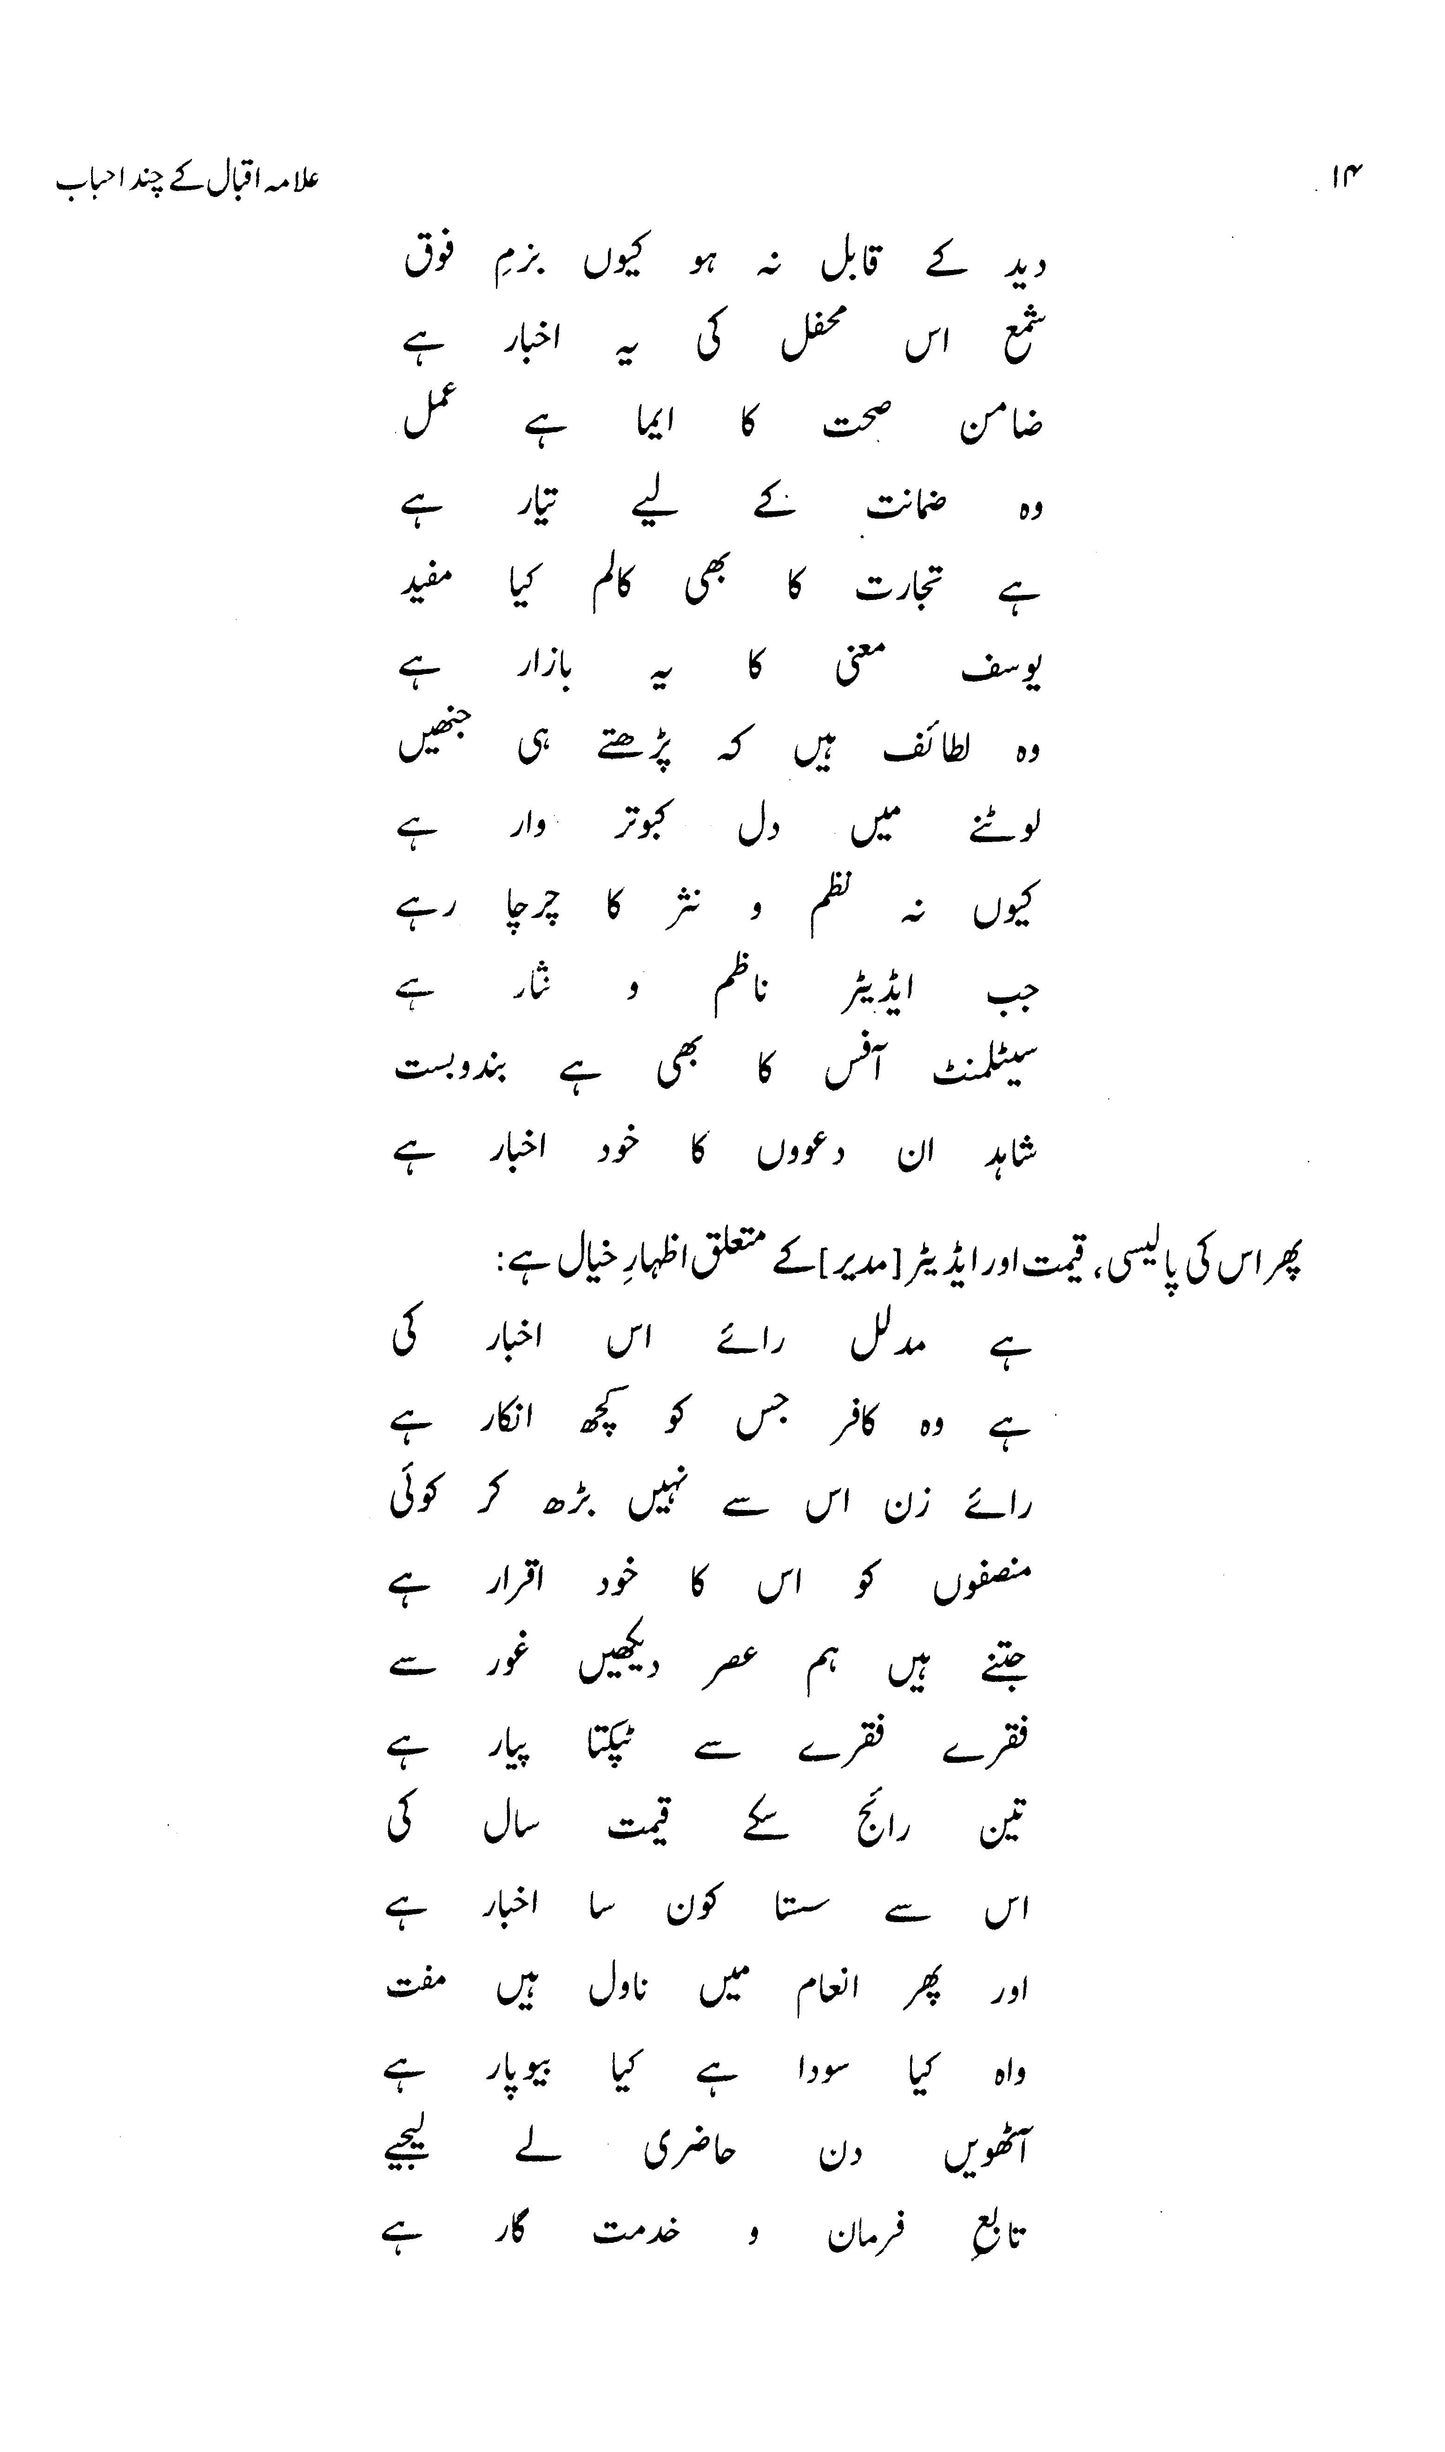 ۱۴
علامہ اقبال کے چند احباب
دید کے قابل نہ ہو کیوں بزمِ فوق
شمع اس محفل کی یہ اخبار ہے
ضامن صحت کا ایما ہے عمل
وہ ضمانت کے لیے تیار ہے
ہے تجارت کا بھی کالم کیا مفید
یوسف معنی کا یہ بازار ہے
وہ لطائف ہیں کہ پڑھتے ہی جنھیں
لوٹنے میں دل کبوتر وار ہے
کیوں نہ نظم و نثر کا چرچا رہے
جب ایڈیٹر ناظم و نثار ہے
سیٹلمنٹ آفس کا بھی ہے بندوبست
شاہد ان دعووں کا خود اخبار ہے
پھر اس کی پالیسی، قیمت اور ایڈیٹر [مدیر] کے متعلق اظہارِ خیال ہے:
ہے مدلل رائے اس اخبار کی
ہے وہ کافر جس کو کچھ انکار ہے
رائے زن اس سے نہیں بڑھ کر کوئی
منصفوں کو اس کا خود اقرار ہے
جتنے ہیں ہم عصر دیکھیں غور سے
فقرے فقرے سے ٹپکتا پیار ہے
تین رائج سکے قیمت سال کی
اس سے سستا کون سا اخبار ہے
اور پھر انعام میں ناول ہیں مفت
واہ کیا سودا ہے کیا بیوپار ہے
آٹھویں دن حاضری لے لیجیے
تابعِ فرمان و خدمت گار ہے